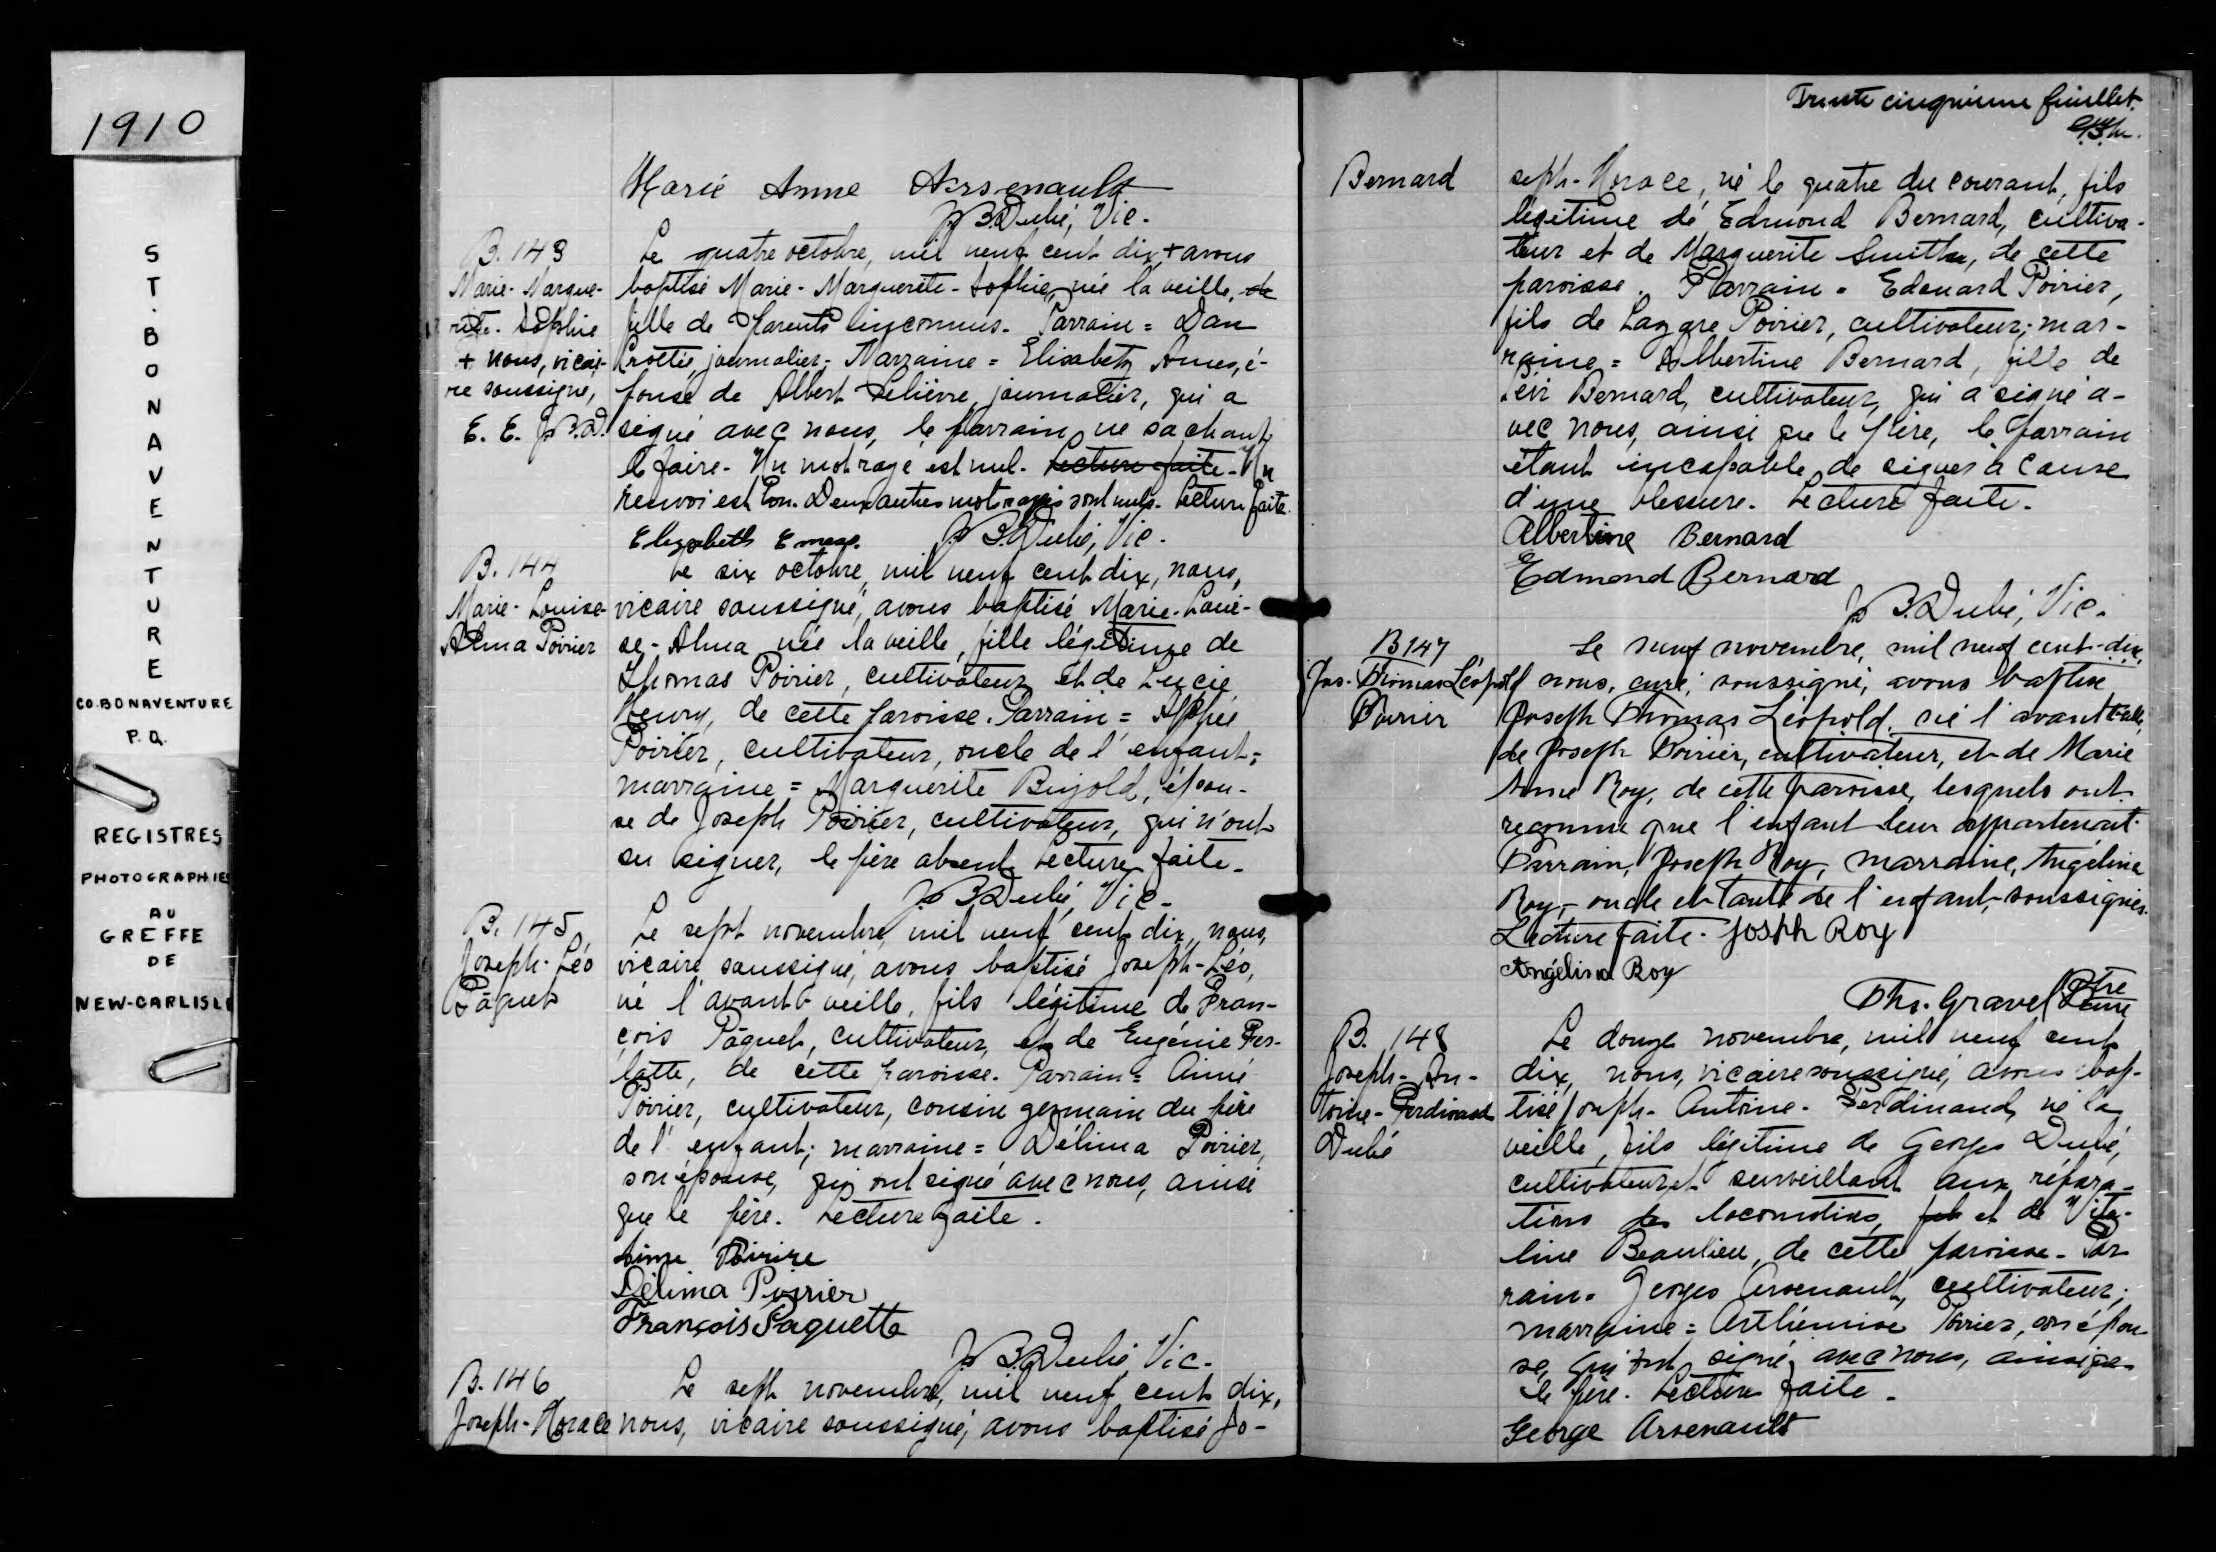 1910
ST. BONAVENTURE
CO. BONAVENTURE
P.Q.
REGISTRES
PHOTOGRAPHIES
AU
GREFFE
DE
NEW-CARLISLE
Marie Anne Arsenault
J.B. Dubé, Vic.
B. 143
Marie-Margue-
rite-Sophie
+ nous, vicai-
re soussigné,
E. E. J.B.D.
Le quatre octobre, mil neuf cent dix, + avons
baptisé Marie-Marguerite-Sophie, née la veille, de
fille de Parents inconnus. Parrain = Dan
journalier; Marraine = Elisabeth Ames, é-
pouse de Albert Lelièvre, journalier, qui a
signé avec nous, le parrain ne sachant
le faire. Un mot rayé est nul. Lecture faite. Un
renvoi est bon. Deux autres mots rayés sont nuls. Lecture faite.
Elizabeth J.B. Dubé, Vic.
B. 144
Marie-Louise-
Alma Poirier
Le six octobre, mil neuf cent dix, nous,
vicaire soussigné, avons baptisé Marie-Loui-
se-Alma née la veille, fille légitime de
Thomas Poirier, cultivateur et de Lucie
Henry, de cette paroisse. Parrain = Alphée
Poirier, cultivateur, oncle de l'enfant;
marraine = Marguerite Bujold, épou-
se de Joseph Poirier, cultivateur, qui n'ont
su signer, le père absent. Lecture faite.
J.B. Dubé, Vic.
B. 145
Joseph-Léo
Pâquet
Le sept novembre, mil neuf cent dix, nous,
vicaire soussigné, avons baptisé Joseph-Léo,
né l'avant-veille, fils légitime de Fran-
çois Pâquet, cultivateur, et de Eugénie Fer-
latte, de cette paroisse. Parrain = Aimé
Poirier, cultivateur, cousin germain du père
de l'enfant; marraine = Délima Poirier,
son épouse, qui ont signé avec nous, ainsi
que le père. Lecture faite.
Aime Poirire
Délima Poirier
François Paquette
J.B. Dubé, Vic.
B. 146
Joseph-Horace
Le sept novembre, mil neuf cent dix,
nous, vicaire soussigné, avons baptisé Jo-
Trente cinquième feuillet.
Bernard
seph-Horace, né le quatre du courant, fils
légitime de Edmond Bernard, cultiva-
teur et de Marguerite Smith, de cette
paroisse. Parrain = Edouard Poirier,
fils de Lazare Poirier, cultivateur; mar-
raine = Albertine Bernard, fille de
Bernard, cultivateur, qui a signé a-
vec nous, ainsi que le père, le parrain
étant incapable de signer à cause
d'une blessure. Lecture faite.
Albertine Bernard
Edmond Bernard
J.B. Dubé, Vic.
B 147
Jos. Thomas Léopold
Poirier
Le neuf novembre, mil neuf cent-dix,
nous, curé, soussigné, avons baptisé
Joseph Thomas Léopold, né l'avant veille,
de Joseph Poirier, cultivateur, et de Marie
Anne Roy, de cette paroisse, lesquels ont
reconnu que l'enfant leur appartenait.
Parrain, Joseph Roy, marraine, Angélina
Roy, - oncle et tante de l'enfant, soussignés.
Lecture faite. Josph Roy
Angélina Roy
Ths. Gravel Ptre
Curé
B. 148
Joseph-An-
toine-Ferdinand
Dubé
Le douze novembre, mil neuf cent
dix, nous, vicaire soussigné, avons bap-
tisé Joseph-Antoine-Ferdinand, né la
veille, fils légitime de Georges Dubé,
cultivateur et surveillant aux répara-
tions des locomotives, et de Vita-
line Beaulieu, de cette paroisse. Par-
rain = Georges Arsenault, cultivateur;
marraine = Arthémise Poirier, son épou-
se, qui ont signé avec nous, ainsi que
le père. Lecture faite.
George Arsenault